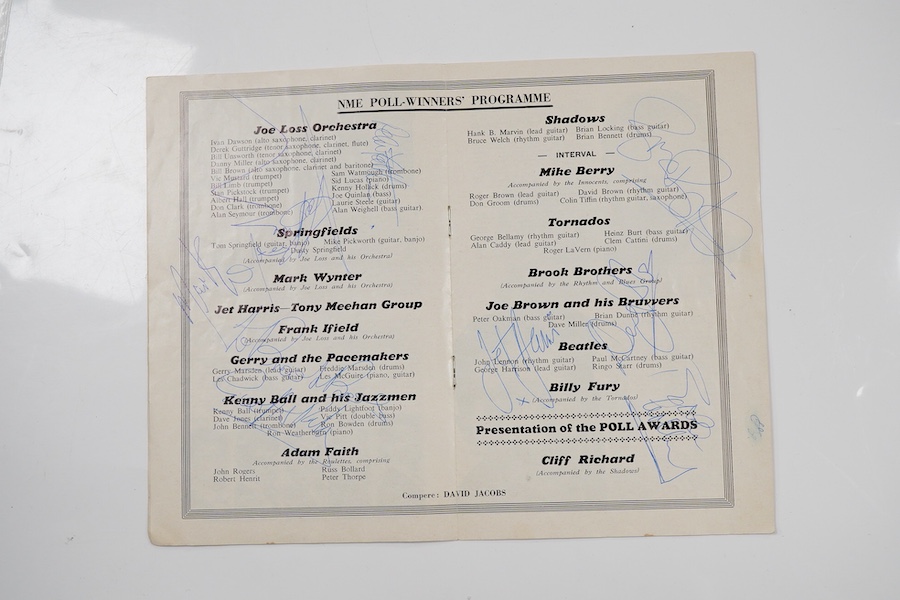 NME POLL-WINNERS' PROGRAMME
Joe Loss Orchestra
Ivan Dawson (alto saxophone, clarinet)
Derek Guttridge (tenor saxophone, clarinet, flute)
Bill Unsworth (tenor saxophone, clarinet)
Danny Miller (alto saxophone, clarinet)
Bill Brown (alto saxophone, clarinet and baritone)
Vic Mustard (trumpet)
Bill Limb (trumpet)
Stan Pickstock (trumpet)
Albert Hall (trumpet)
Don Clark (trombone)
Alan Seymour (trombone)
Sam Watmough (trombone)
Sid Lucas (piano)
Kenny Hollick (drums)
Joe Quinlan (bass)
Laurie Steele (guitar)
Alan Weighell (bass guitar)
Springfields
Tom Springfield (guitar, banjo) Mike Pickworth (guitar, banjo)
Dusty Springfield
(Accompanied by Joe Loss and his Orchestra)
Mark Wynter
(Accompanied by Joe Loss and his Orchestra)
Jet Harris—Tony Meehan Group
Frank Ifield
(Accompanied by Joe Loss and his Orchestra)
Gerry and the Pacemakers
Gerry Marsden (lead guitar) Freddie Marsden (drums)
Les Chadwick (bass guitar) Les McGuire (piano, guitar)
Kenny Ball and his Jazzmen
Kenny Ball (trumpet) Paddy Lightfoot (banjo)
Dave Jones (clarinet) Vic Pitt (double bass)
John Bennett (trombone) Ron Bowden (drums)
Ron Weatherburn (piano)
Adam Faith
Accompanied by the Roulettes, comprising
John Rogers Russ Ballard
Robert Henrit Peter Thorpe
Shadows
Hank B. Marvin (lead guitar) Brian Locking (bass guitar)
Bruce Welch (rhythm guitar) Brian Bennett (drums)
— INTERVAL —
Mike Berry
Accompanied by the Innocents, comprising
Roger Brown (lead guitar) David Brown (rhythm guitar)
Don Groom (drums) Colin Tiffin (rhythm guitar, saxophone)
Tornados
George Bellamy (rhythm guitar) Heinz Burt (bass guitar)
Alan Caddy (lead guitar) Clem Cattini (drums)
Roger LaVern (piano)
Brook Brothers
(Accompanied by the Rhythm and Blues Group)
Joe Brown and his Bruvvers
Peter Oakman (bass guitar) Brian Dunne (rhythm guitar)
Dave Miller (drums)
Beatles
John Lennon (rhythm guitar) Paul McCartney (bass guitar)
George Harrison (lead guitar) Ringo Starr (drums)
Billy Fury
(Accompanied by the Tornados)
Presentation of the POLL AWARDS
Cliff Richard
(Accompanied by the Shadows)
Compere: DAVID JACOBS
Jet Harris